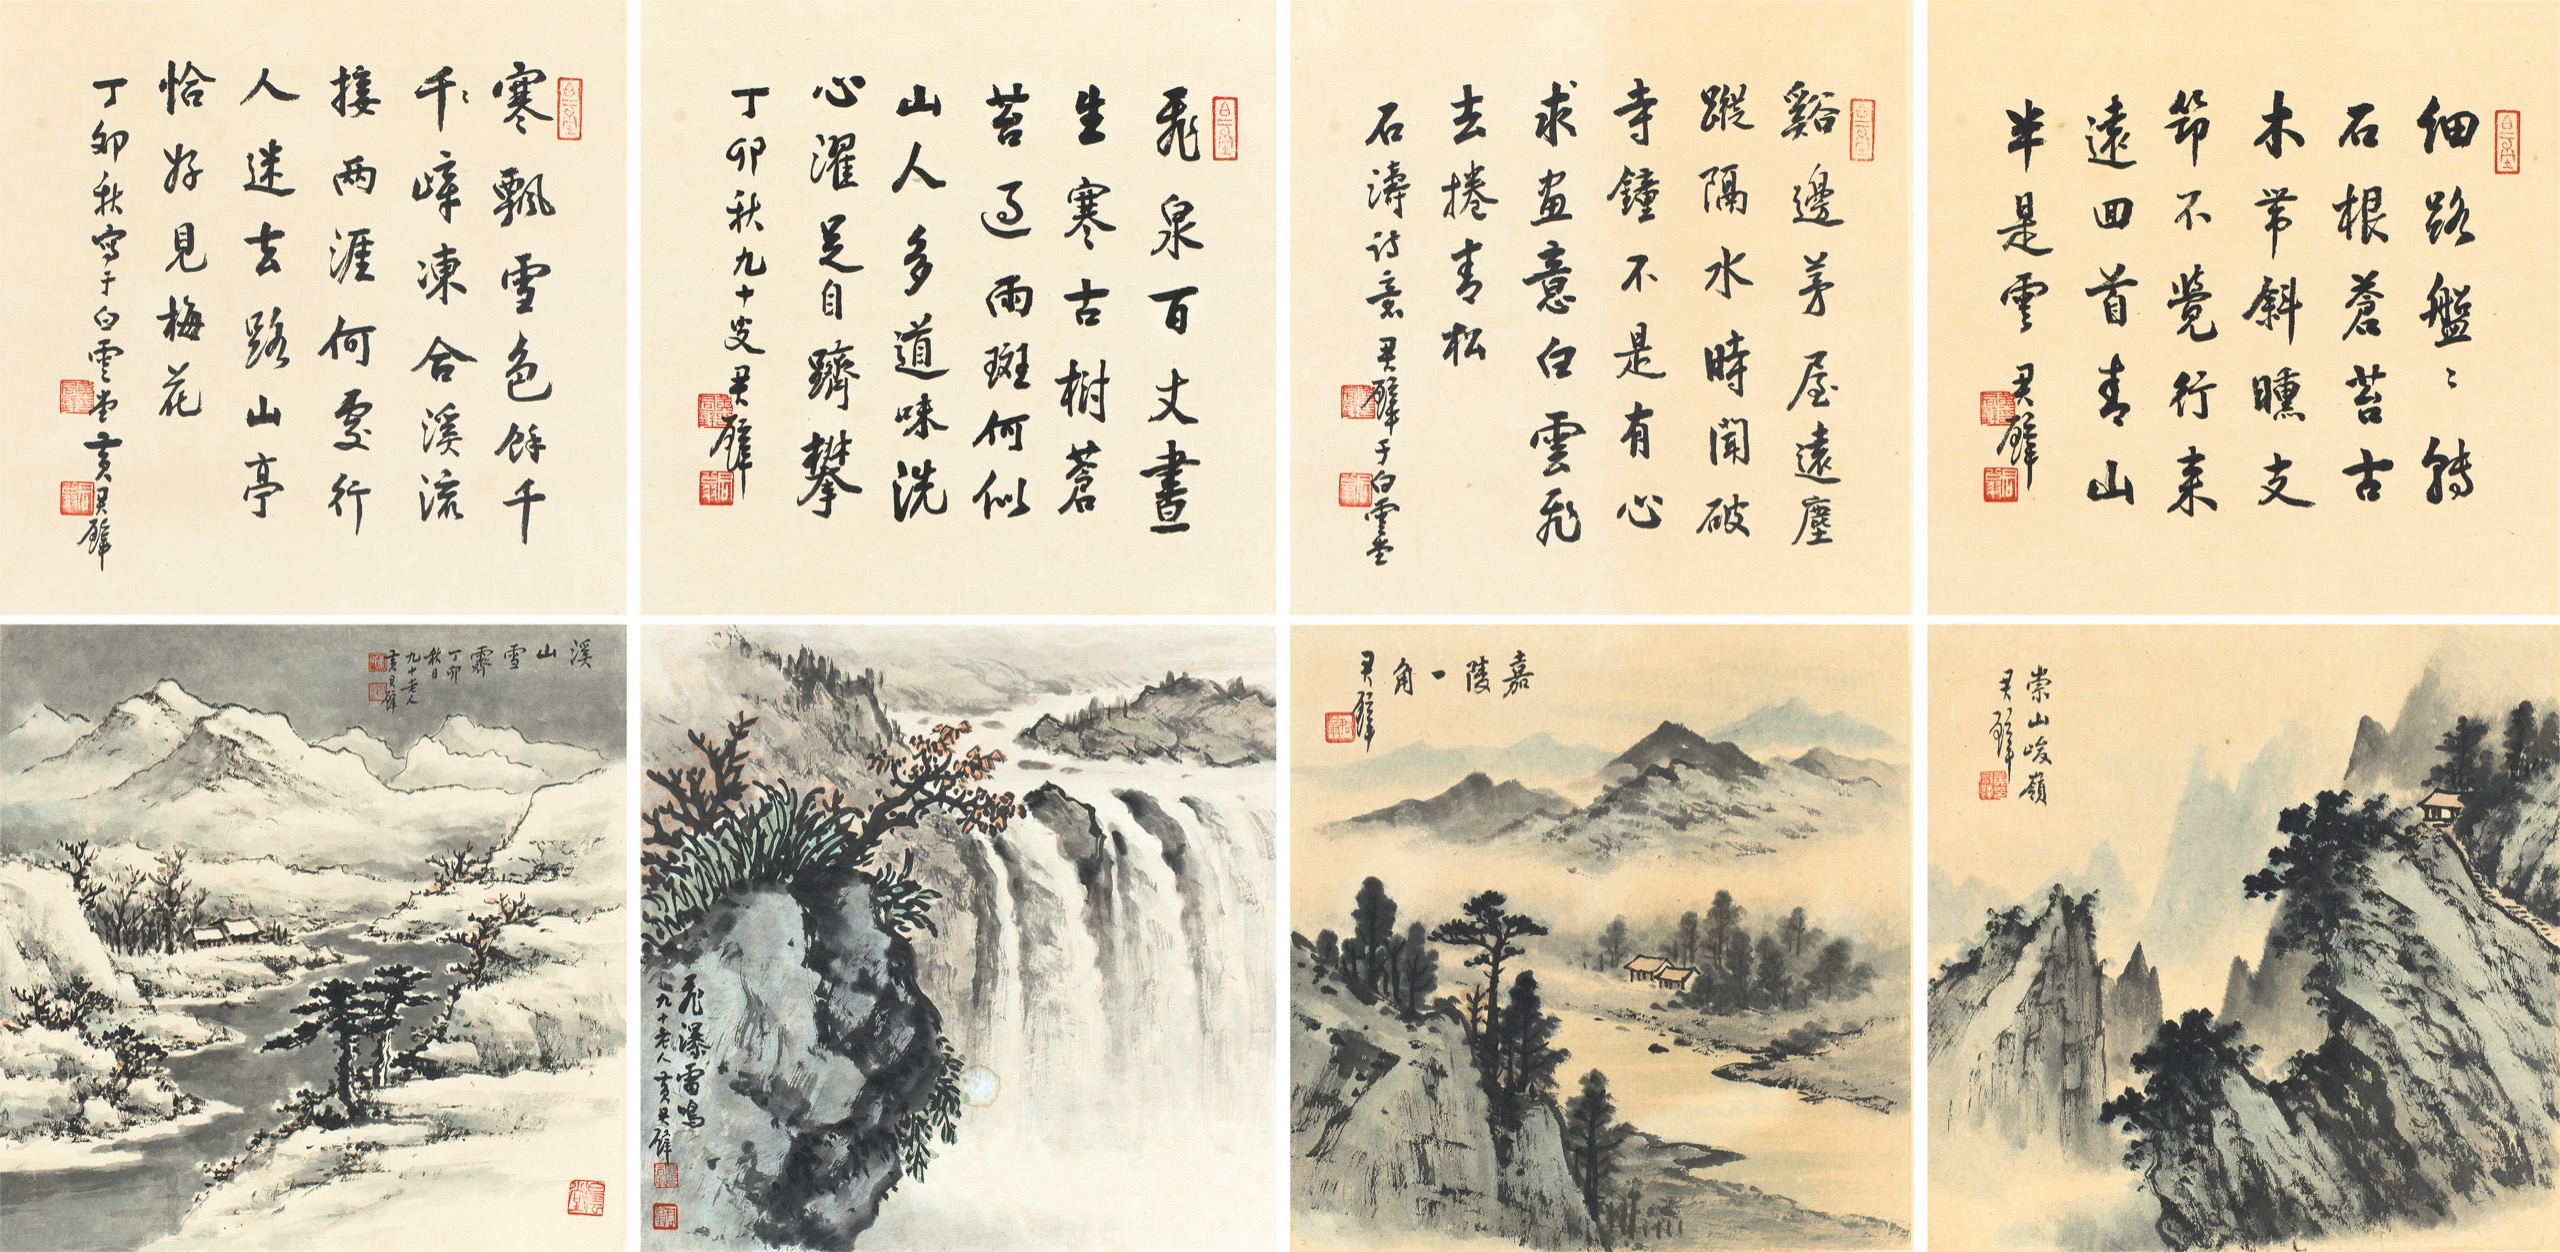 細路盤〻轉
石根蒼苔古
木帶斜曛支
筇不覺行来
遠回首青山
半是雲 君璧
谿邊茅屋遠塵
蹤隔水時聞破
寺鐘不是有心
求畫意白雲飛
去捲青松
石濤詩意君璧于白雲堂
飛泉百丈晝
生寒古樹蒼
苔過雨斑何似
山人多道味洗
心濯足自躋攀
丁卯秋九十叟君璧
寒飄雪色餘千
千〻嶂凍合溪流
接两涯何處行
人迷去路山亭
恰好見梅花
丁卯秋寫于白雲堂黃君璧
崇山峻嶺
君璧
嘉陵一角
君璧
飛瀑雷鳴
九十老人黃君璧
溪山雪霽
丁卯
秋日
九十老人
黃君璧